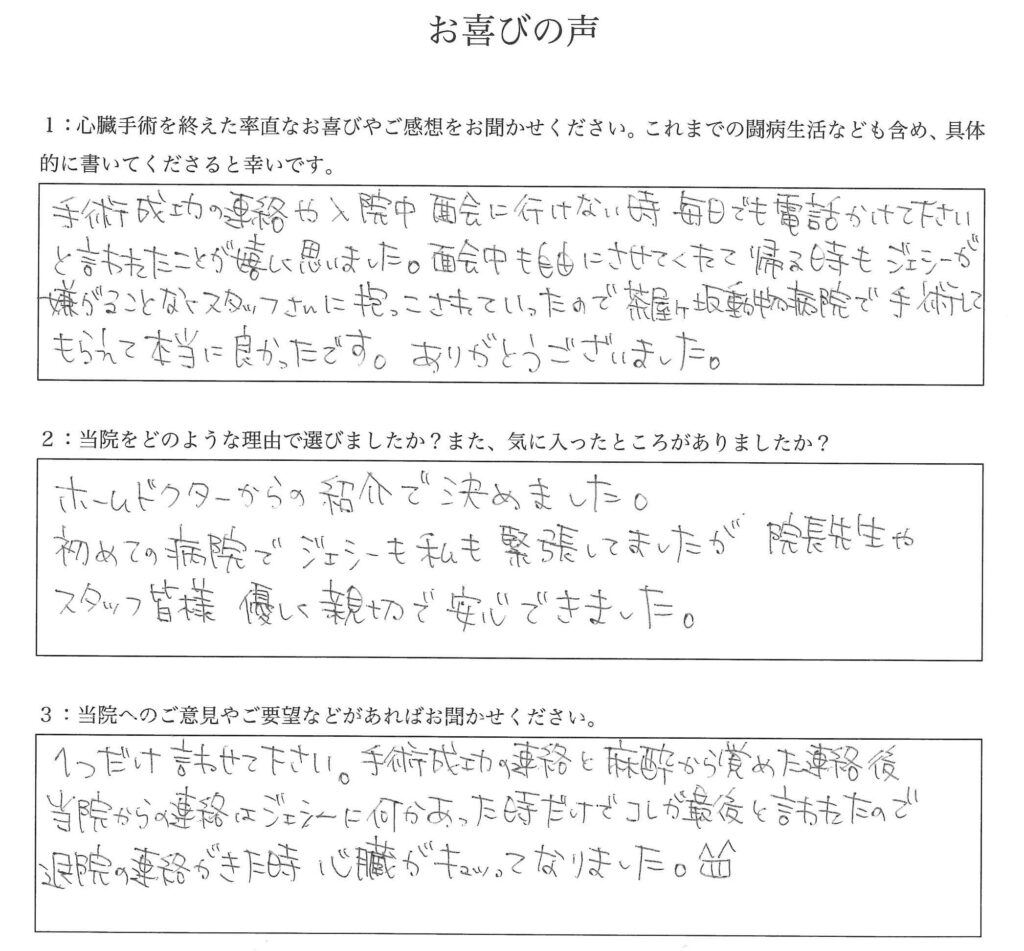 お喜びの声
1：心臓手術を終えた率直なお喜びやご感想をお聞かせください。これまでの闘病生活なども含め、具体
的に書いてくださると幸いです。
手術成功の連絡や入院中 面会に行けない時 毎日でも電話かけて下さい
と言われたことが嬉しく思いました。面会中も自由にさせてくれて 帰る時も ジェシーが
嫌がることなくスタッフさんに抱っこされていったので 茶屋ヶ坂動物病院で 手術して
もらえて本当に良かったです。ありがとうございました。
2：当院をどのような理由で選びましたか？また、気に入ったところがありましたか？
ホームドクターからの紹介で決めました。
初めての病院で ジェシーも私も緊張してましたが 院長先生や
スタッフ皆様 優しく親切で安心できました。
3：当院へのご意見やご要望などがあればお聞かせください。
1つだけ言わせて下さい。手術成功の連絡と麻酔から覚めた連絡後
当院からの連絡はジェシーに何かあった時だけでコレが最後と言われたので
退院の連絡がきた時 心臓がキュッってなりました。